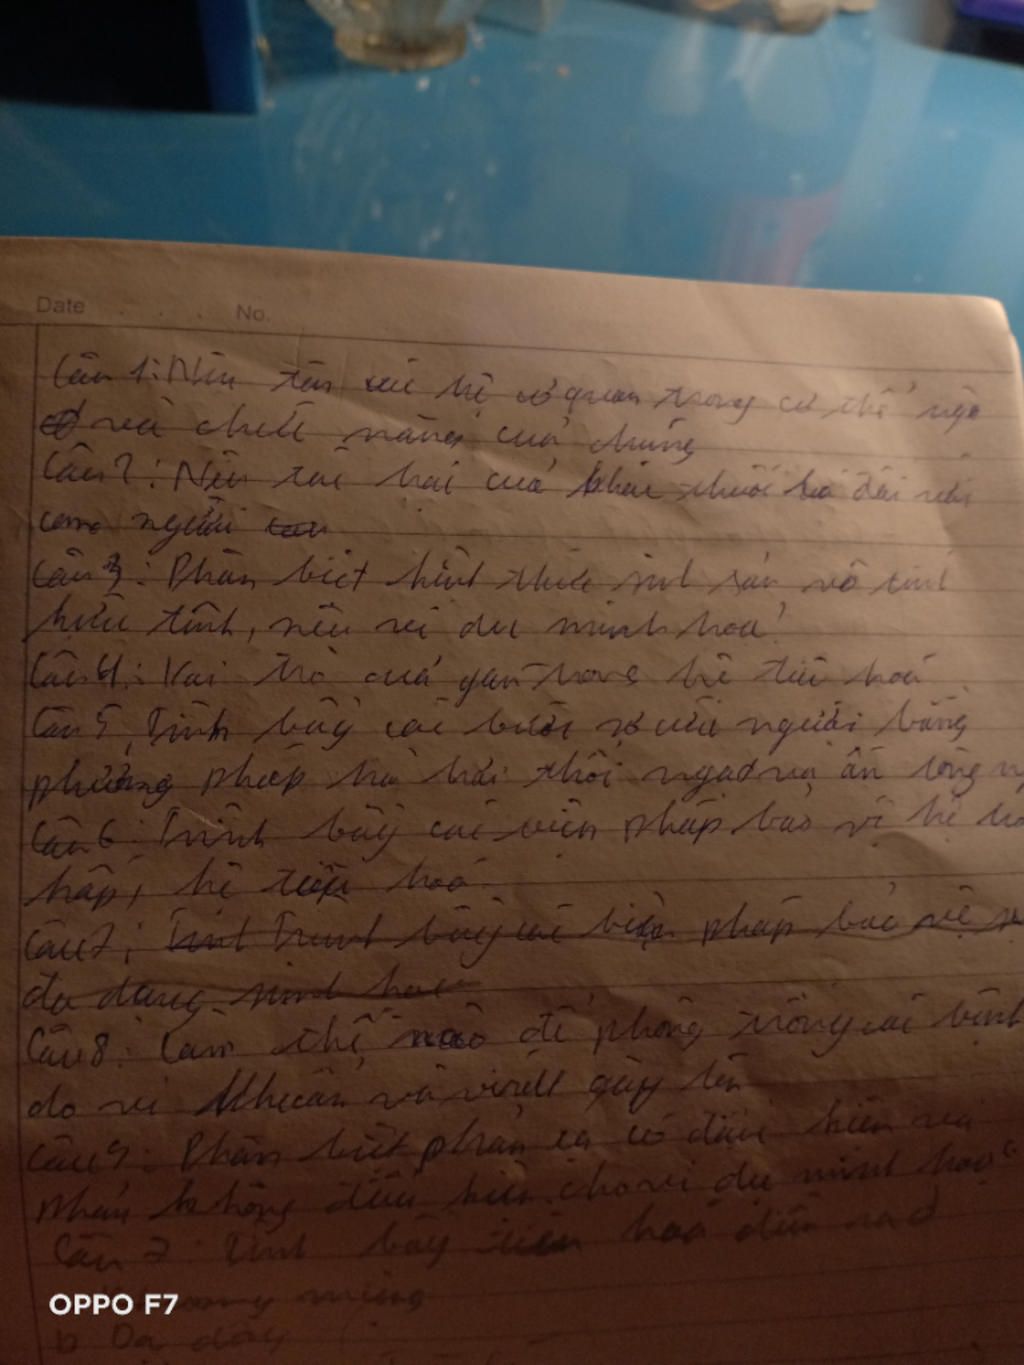 Date . . . . No.
Câu 1: Nêu tên các hệ cơ quan trong cơ thể ngư
và chức năng của chúng
Câu 2: Nêu tác hại của khói thuốc lá đối với
con người
Câu 3: Phân biệt hình thức sinh sản vô tính
hữu tính, nêu ví dụ minh hoạ
Câu 4: Vai trò của gan trong hệ tiêu hoá
Câu 5, Trình bày các bước sơ cứu người bằng
phương pháp hà hơi thổi ngạt và ấn lồng ng
Câu 6: Trình bày các biện pháp bảo vệ hệ hô
hấp, hệ tiêu hoá.
Câu 7: Trình bày các biện pháp bảo vệ
đa dạng sinh học
Câu 8: Làm thế nào để phòng chống các bệnh
do vi khuẩn và virút gây lên
Câu 9: Phân biệt phản xạ có điều kiện và
phản không điều kiện. cho ví dụ minh hoạ
Câu 7: Trình bày tiêu hoá diễn ra ở
miệng
b Dạ dày
OPPO F7